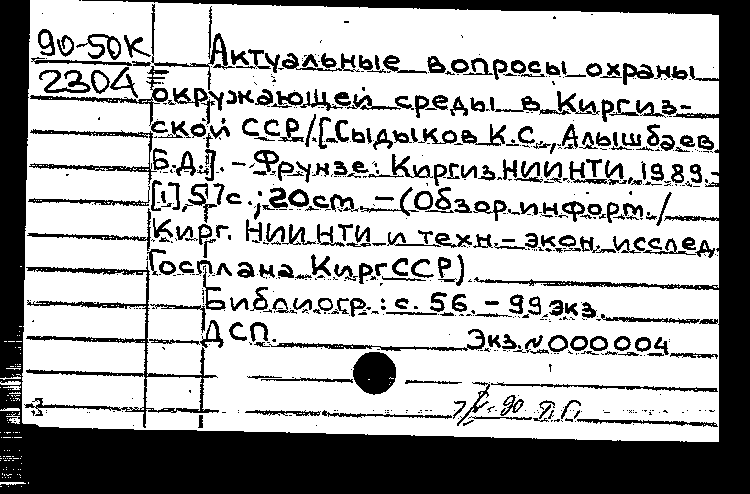 90-50К
2304
Актуальные вопросы охраны
окружающей среды в Киргиз-
ской ССР/[Сыдыков К.С., Алышбаев
Б.Д.]. - Фрунзе: КиргизНИИНТИ, 1989.-
[1], 57с.; 20см. - (Обзор. информ. /
Кирг. НИИНТИ и техн.-экон. исслед.
Госплана КиргССР)
Библиогр.: с. 56. - 99 экз.
ДСП. Экз.№000004